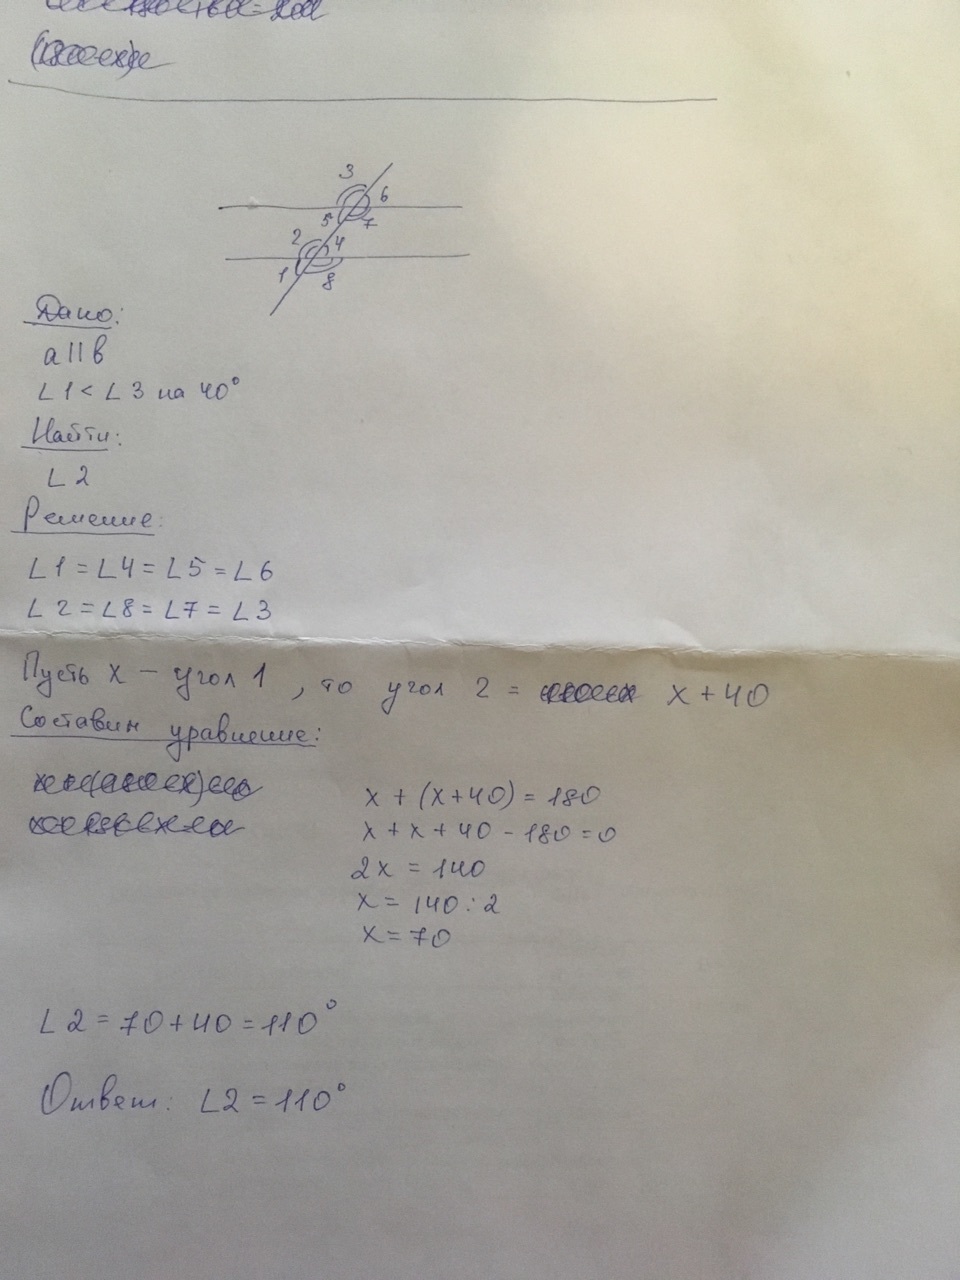 3
6
5
7
2
4
1
8
Дано:
a || b
∠1 < ∠3 на 40°
Найти:
∠2
Решение:
∠1 = ∠4 = ∠5 = ∠6
∠2 = ∠8 = ∠7 = ∠3
Пусть x – угол 1, то угол 2 = x + 40
Составим уравнение:
x + (x+40) = 180
x + x + 40 - 180 = 0
2x = 140
x = 140 : 2
x = 70
∠2 = 70 + 40 = 110°
Ответ: ∠2 = 110°